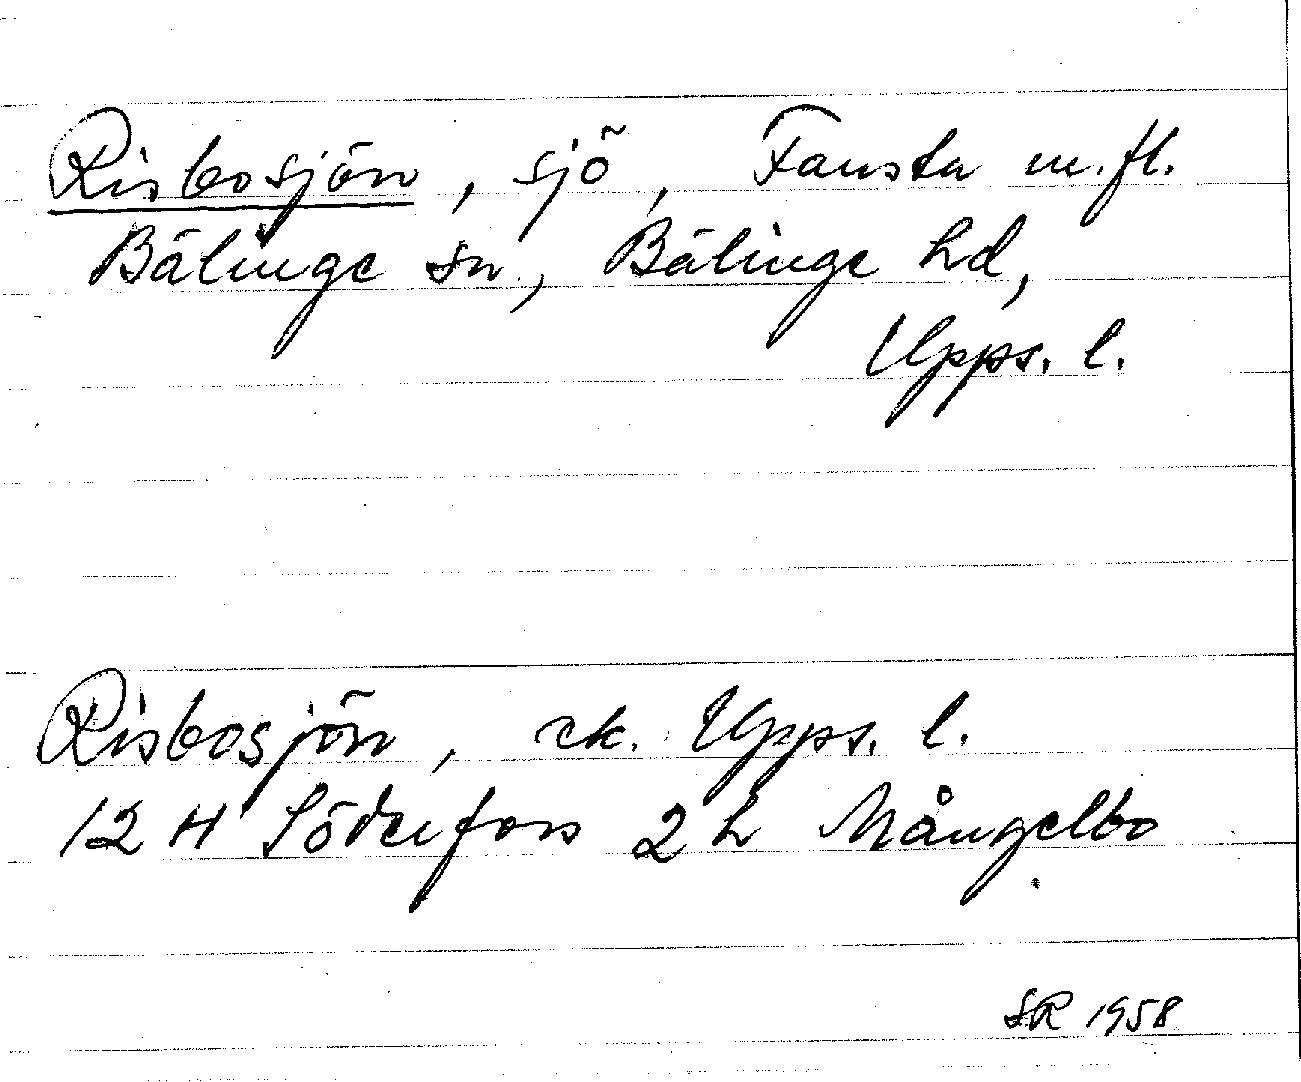 Risbosjön, sjö, Fansta m.fl.
Bälinge sn, Bälinge hd,
Upps. l.
Risbosjön, ek. Upps. l.
12 H Söderfors 2 h Mångelbo
SR 1958